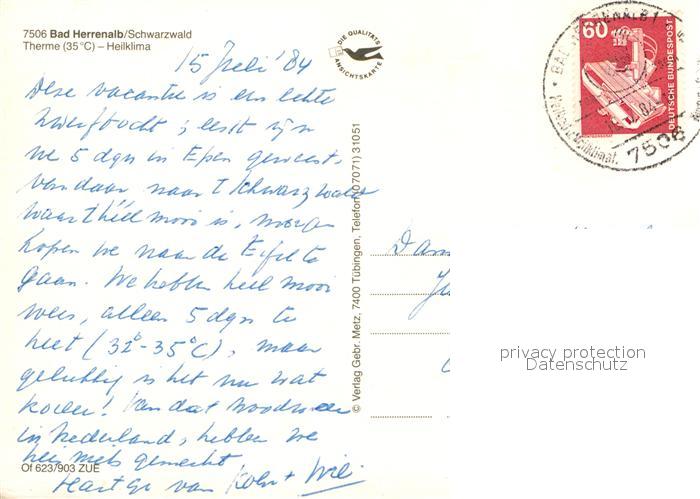 7506 Bad Herrenalb/Schwarzwald
Therme (35°C) – Heilklima
DIE QUALITÄTS
ANSICHTSKARTE
15 Juli '84
Deze vacantie is een echte
zwerftocht; eerst zijn
we 5 dgn in Epen geweest,
vandaar naar 't Schwarzwald
waar 't héél mooi is, morgen
hopen we naar de Eifel te
gaan. We hebben heel mooi
weer, alleen 5 dgn te
heet (32°-35°C), maar
gelukkig is het nu wat
koeler! Van dat noodweer
in Nederland, hebben we
hier niets gemerkt
Hart gr van + Wil
Of 623/903 ZUE
© Verlag Gebr. Metz, 7400 Tübingen, Telefon (07071) 31051
60
DEUTSCHE BUNDESPOST
BAD HERRENALB 1
84
7506
privacy protection
Datenschutz